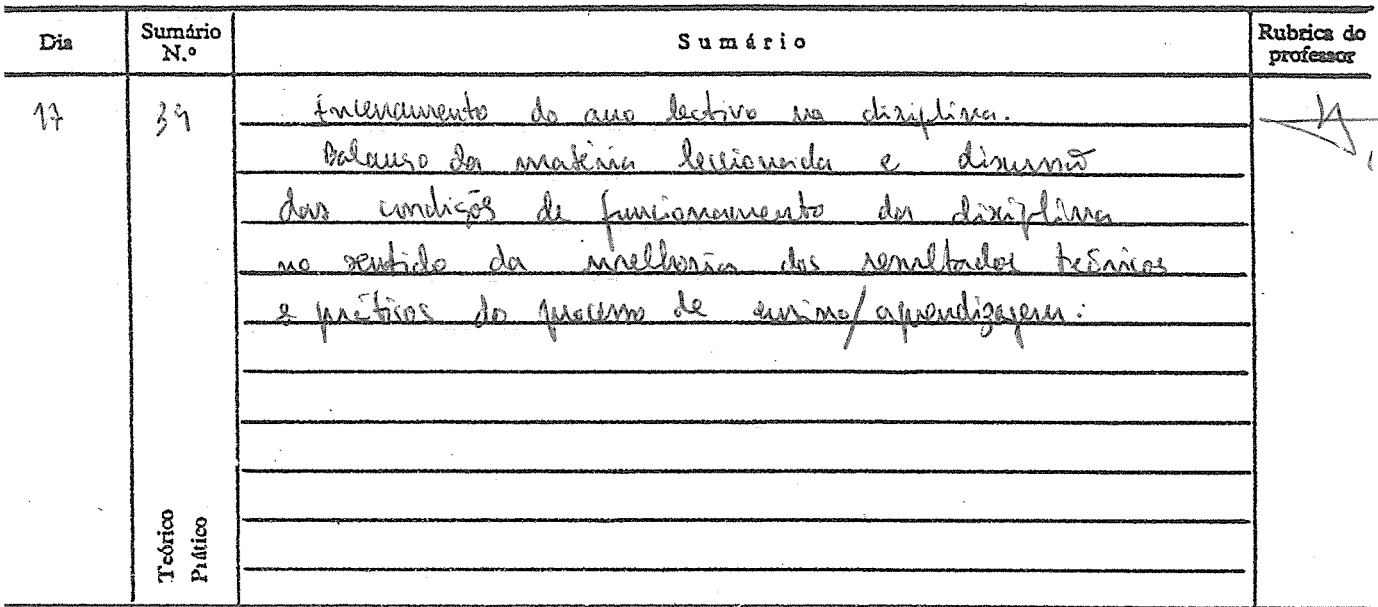 Dia Sumário N.º Sumário Rubrica do professor
17 39 Encerramento do ano lectivo na disciplina.
Balanço da matéria leccionada e discussão
das condições de funcionamento da disciplina
no sentido da melhoria dos resultados teóricos
e práticos do processo de ensino/aprendizagem.
Teórico
Prático